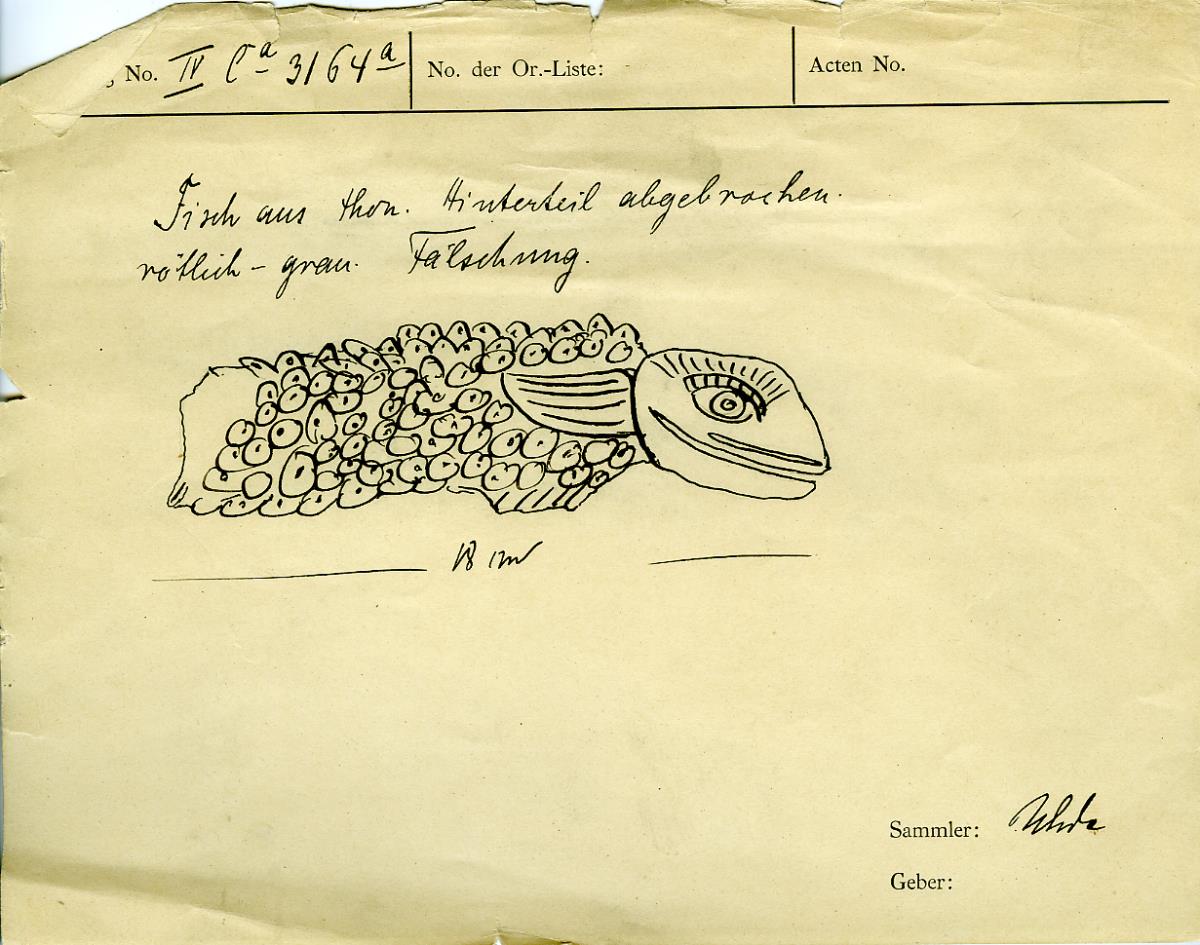 No. IV Ca 3164a No. der Or.-Liste: Acten No.
Fisch aus Thon. Hinterteil abgebrochen.
rötlich-grau. Fälschung.
18 cm
Sammler: Uhde
Geber: